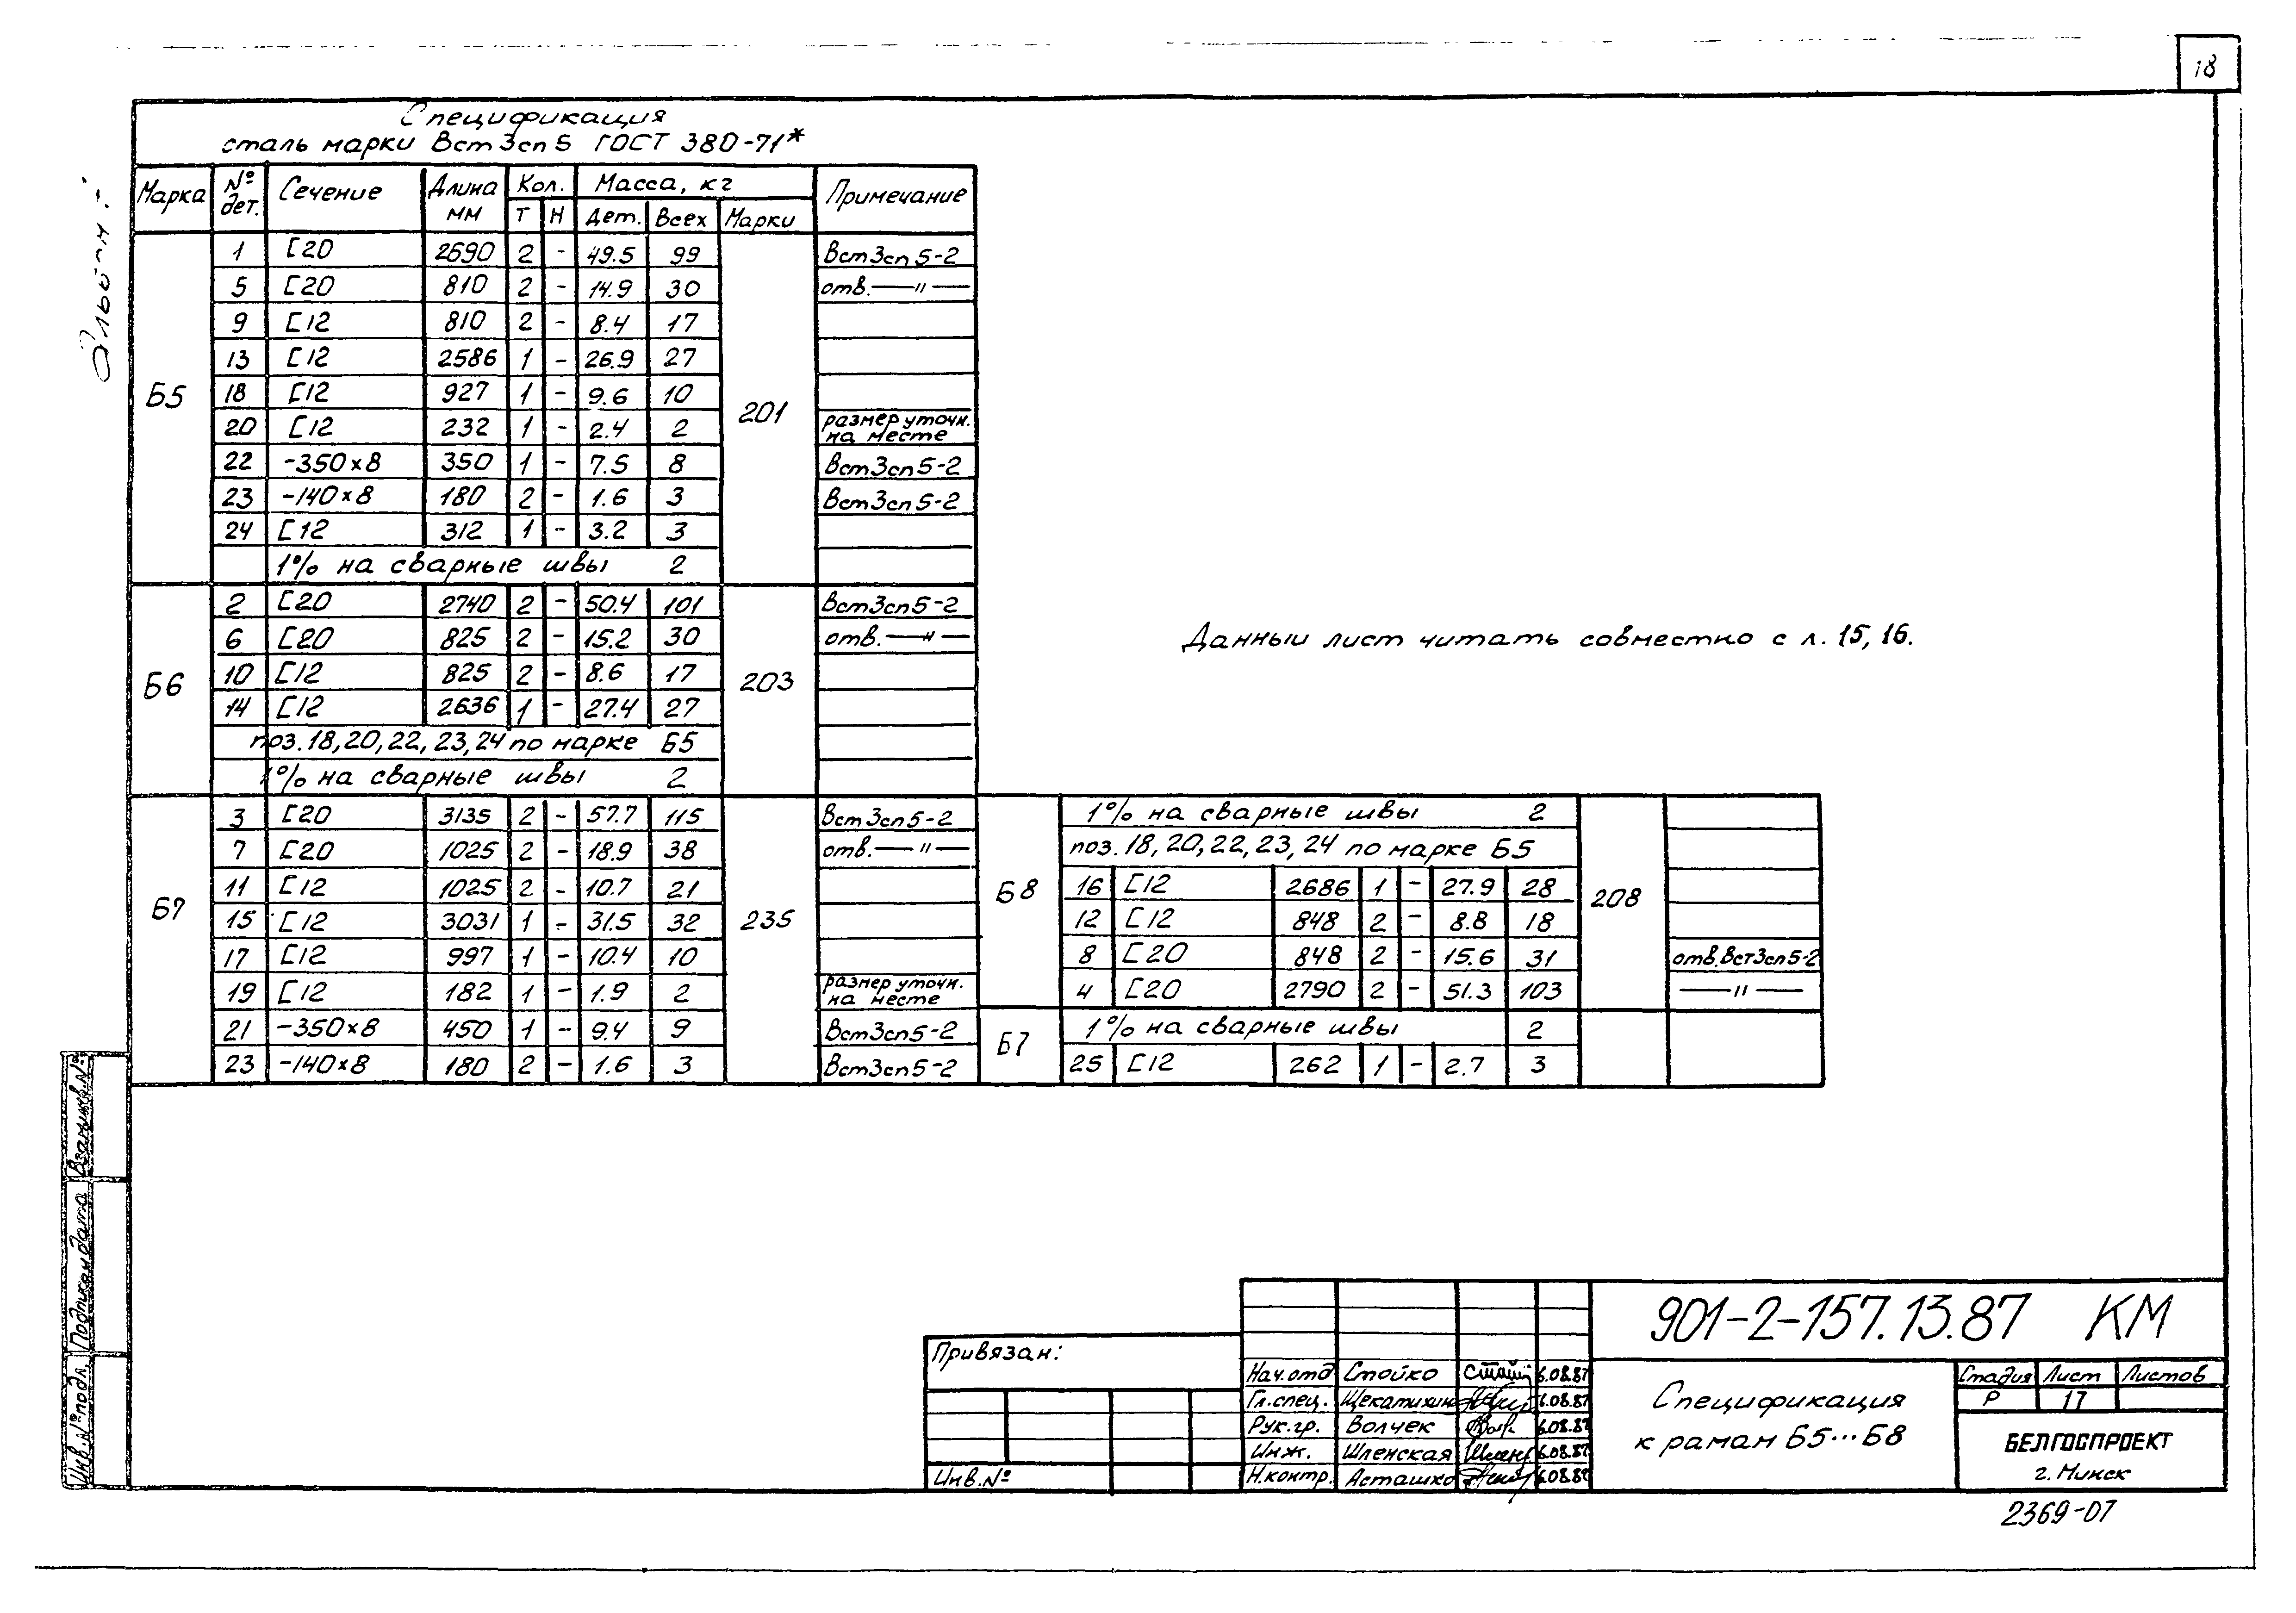 18
Спецификация
сталь марки Вст3сп5 ГОСТ 380-71*
Марка № дет. Сечение Длина мм Кол. Масса, кг Примечание
Т Н Дет. Всех Марки
Б5 201
1 [20 2690 2 - 49.5 99 Вст3сп5-2
5 [20 810 2 - 14.9 30 отв. —"—
9 [12 810 2 - 8.4 17
13 [12 2586 1 - 26.9 27
18 [12 927 1 - 9.6 10
20 [12 232 1 - 2.4 2 размер уточн. на месте
22 -350×8 350 1 - 7.5 8 Вст3сп5-2
23 -140×8 180 2 - 1.6 3 Вст3сп5-2
24 [12 312 1 - 3.2 3
1% на сварные швы 2
Б6 203
2 [20 2740 2 - 50.4 101 Вст3сп5-2
6 [20 825 2 - 15.2 30 отв. —"—
10 [12 825 2 - 8.6 17
14 [12 2636 1 - 27.4 27
поз. 18, 20, 22, 23, 24 по марке Б5
1% на сварные швы 2
Б7 235
3 [20 3135 2 - 57.7 115 Вст3сп5-2
7 [20 1025 2 - 18.9 38 отв. —"—
11 [12 1025 2 - 10.7 21
15 [12 3031 1 - 31.5 32
17 [12 997 1 - 10.4 10
19 [12 182 1 - 1.9 2 размер уточн. на месте
21 -350×8 450 1 - 9.4 9 Вст3сп5-2
23 -140×8 180 2 - 1.6 3 Вст3сп5-2
Б8 208
1% на сварные швы 2
поз. 18, 20, 22, 23, 24 по марке Б5
16 [12 2686 1 - 27.9 28
12 [12 848 2 - 8.8 18
8 [20 848 2 - 15.6 31 отв. Вст3сп5-2
4 [20 2790 2 - 51.3 103 —"—
Б7
1% на сварные швы 2
25 [12 262 1 - 2.7 3
Данный лист читать совместно с л. 15, 16.
Взам.инв.№
Подпись и дата
Инв.№ подл.
Привязан:
Инв.№
Нач.отд Стойко 6.08.87
Гл.спец. Щекатихин 6.08.87
Рук.гр. Волчек 6.08.87
Инж. Шленская 6.08.87
Н.контр. Асташко 6.08.87
901-2-157.13.87 КМ
Спецификация
к рамам Б5...Б8
Стадия Лист Листов
Р 17
БЕЛГОСПРОЕКТ
г. Минск
2369-07